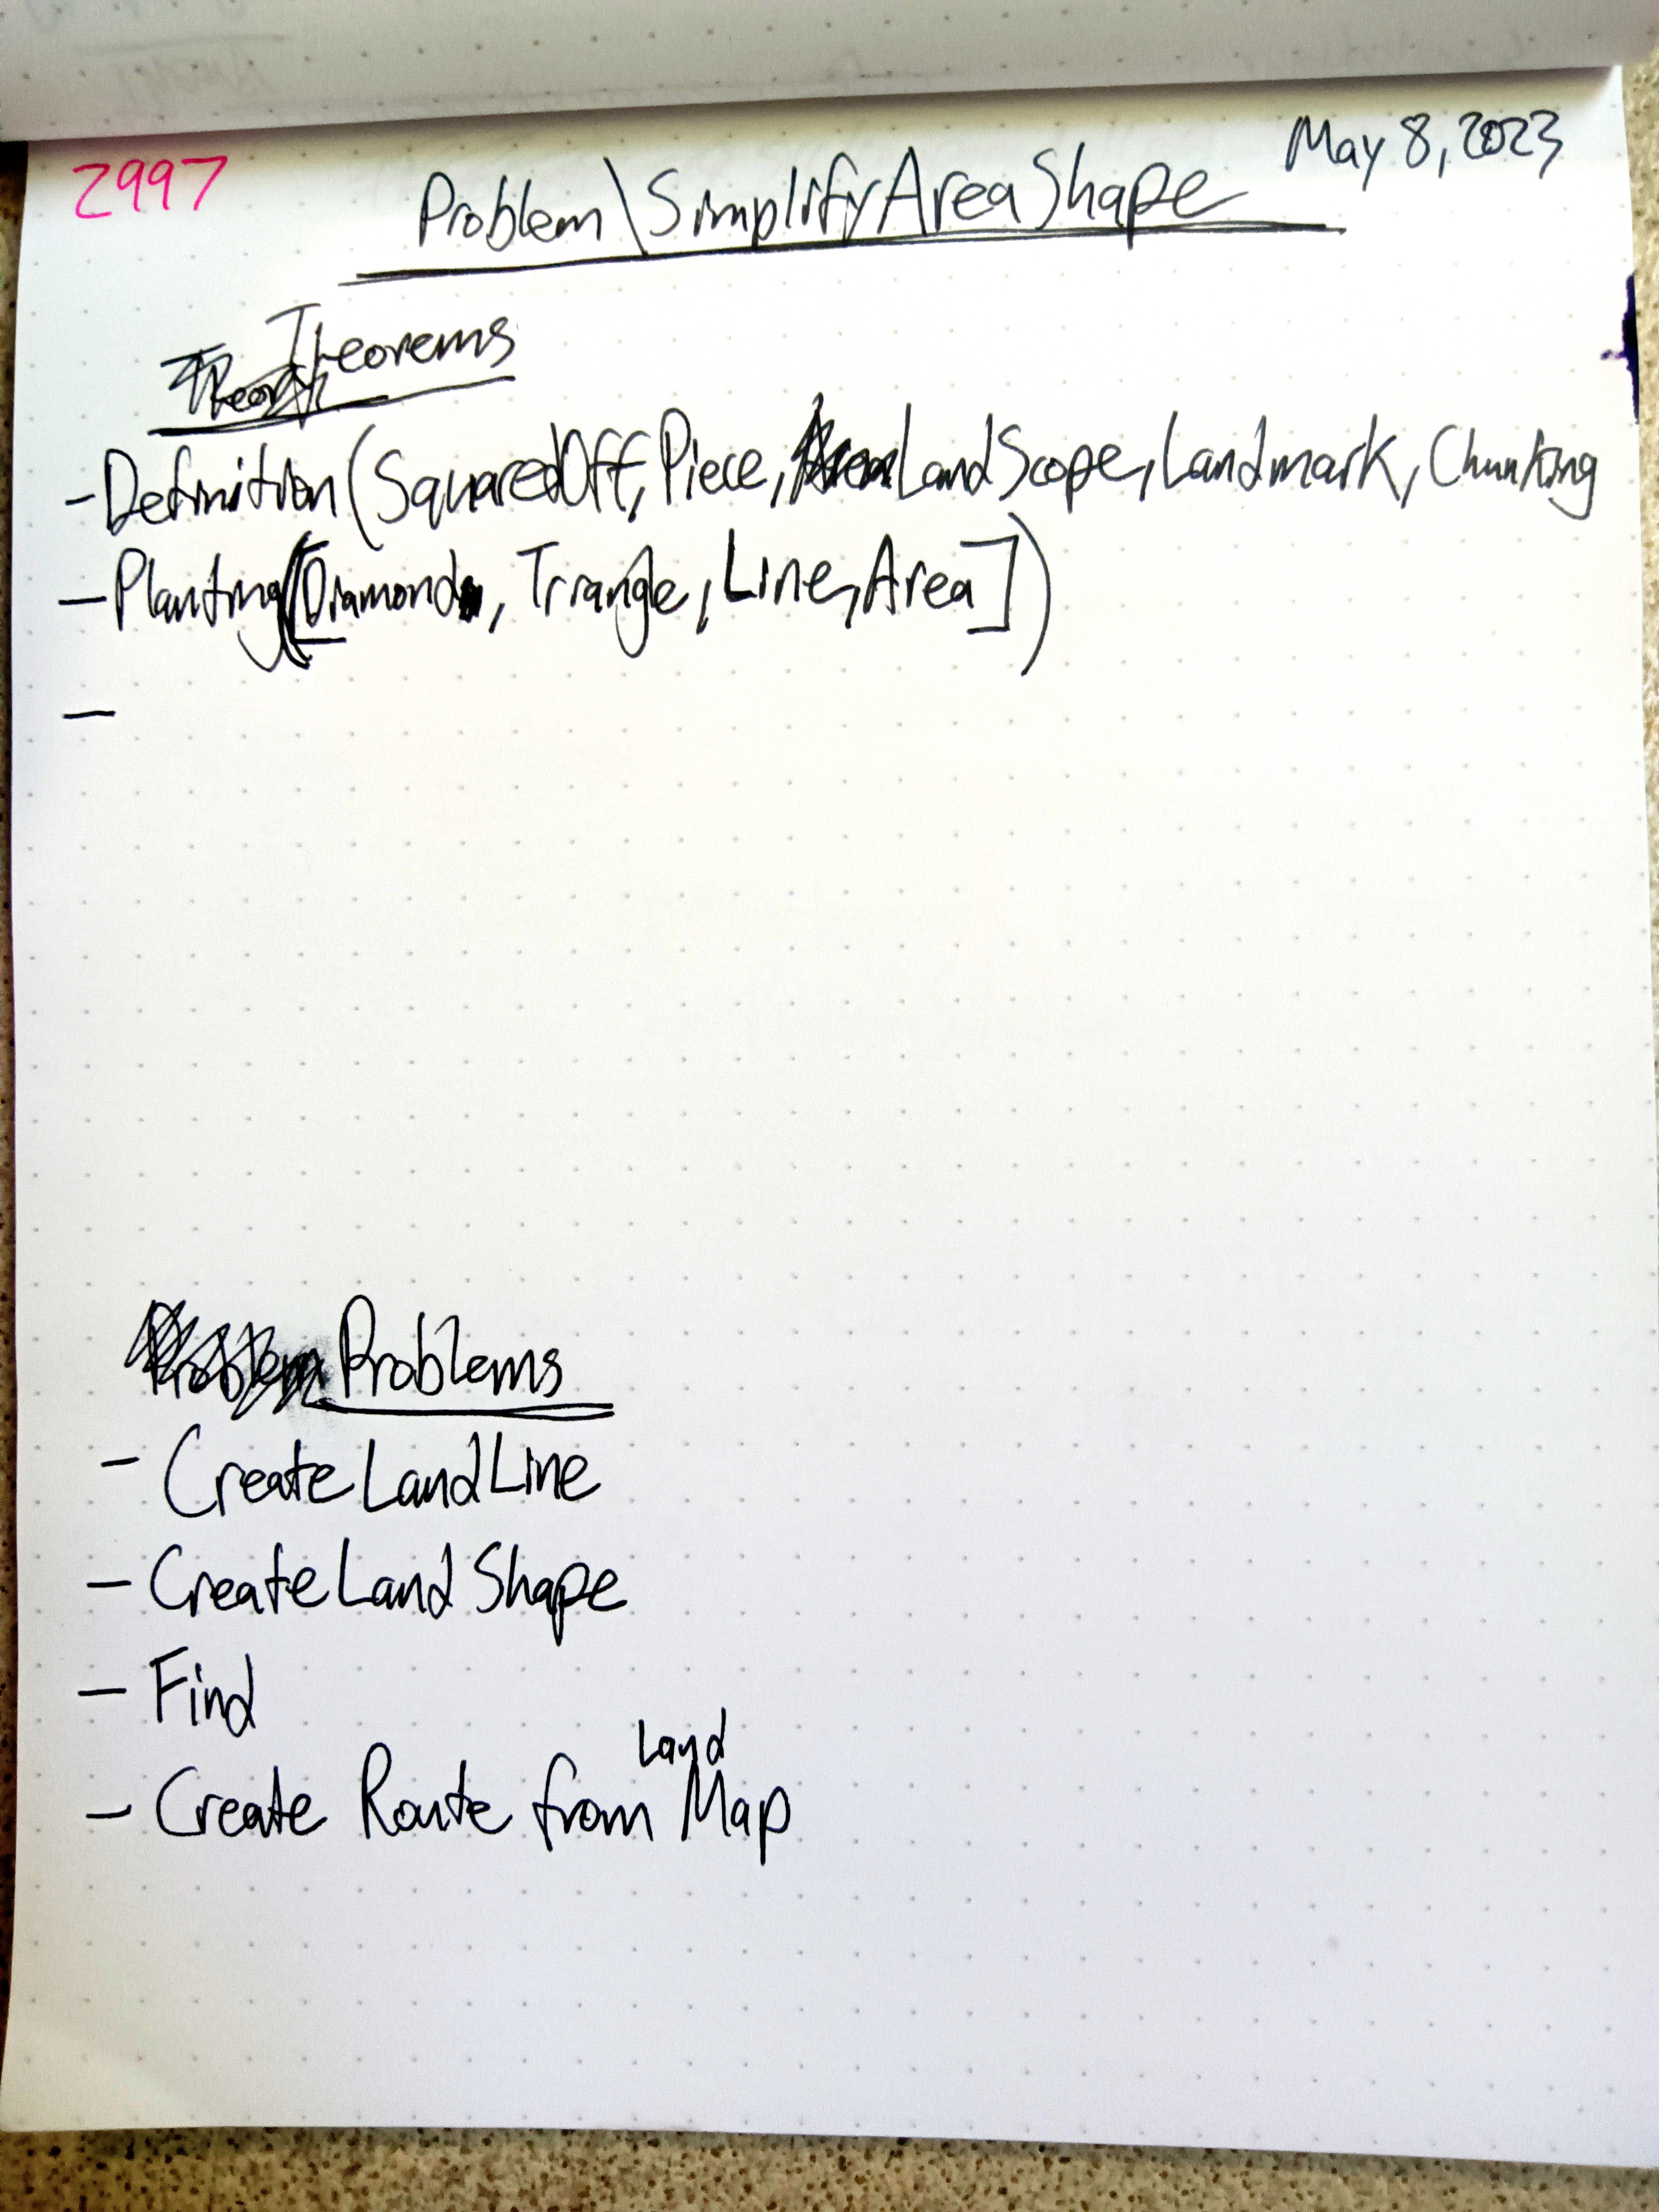 2997
May 8, 2023
Problem\SimplifyAreaShape
Theorems
- Definition(SquaredOff, Piece, LandScope, Landmark, Chunking
- Planting([Diamond, Triangle, Line, Area])
-
Problems
- CreateLandLine
- CreateLandShape
- Find
Land
- Create Route from Map